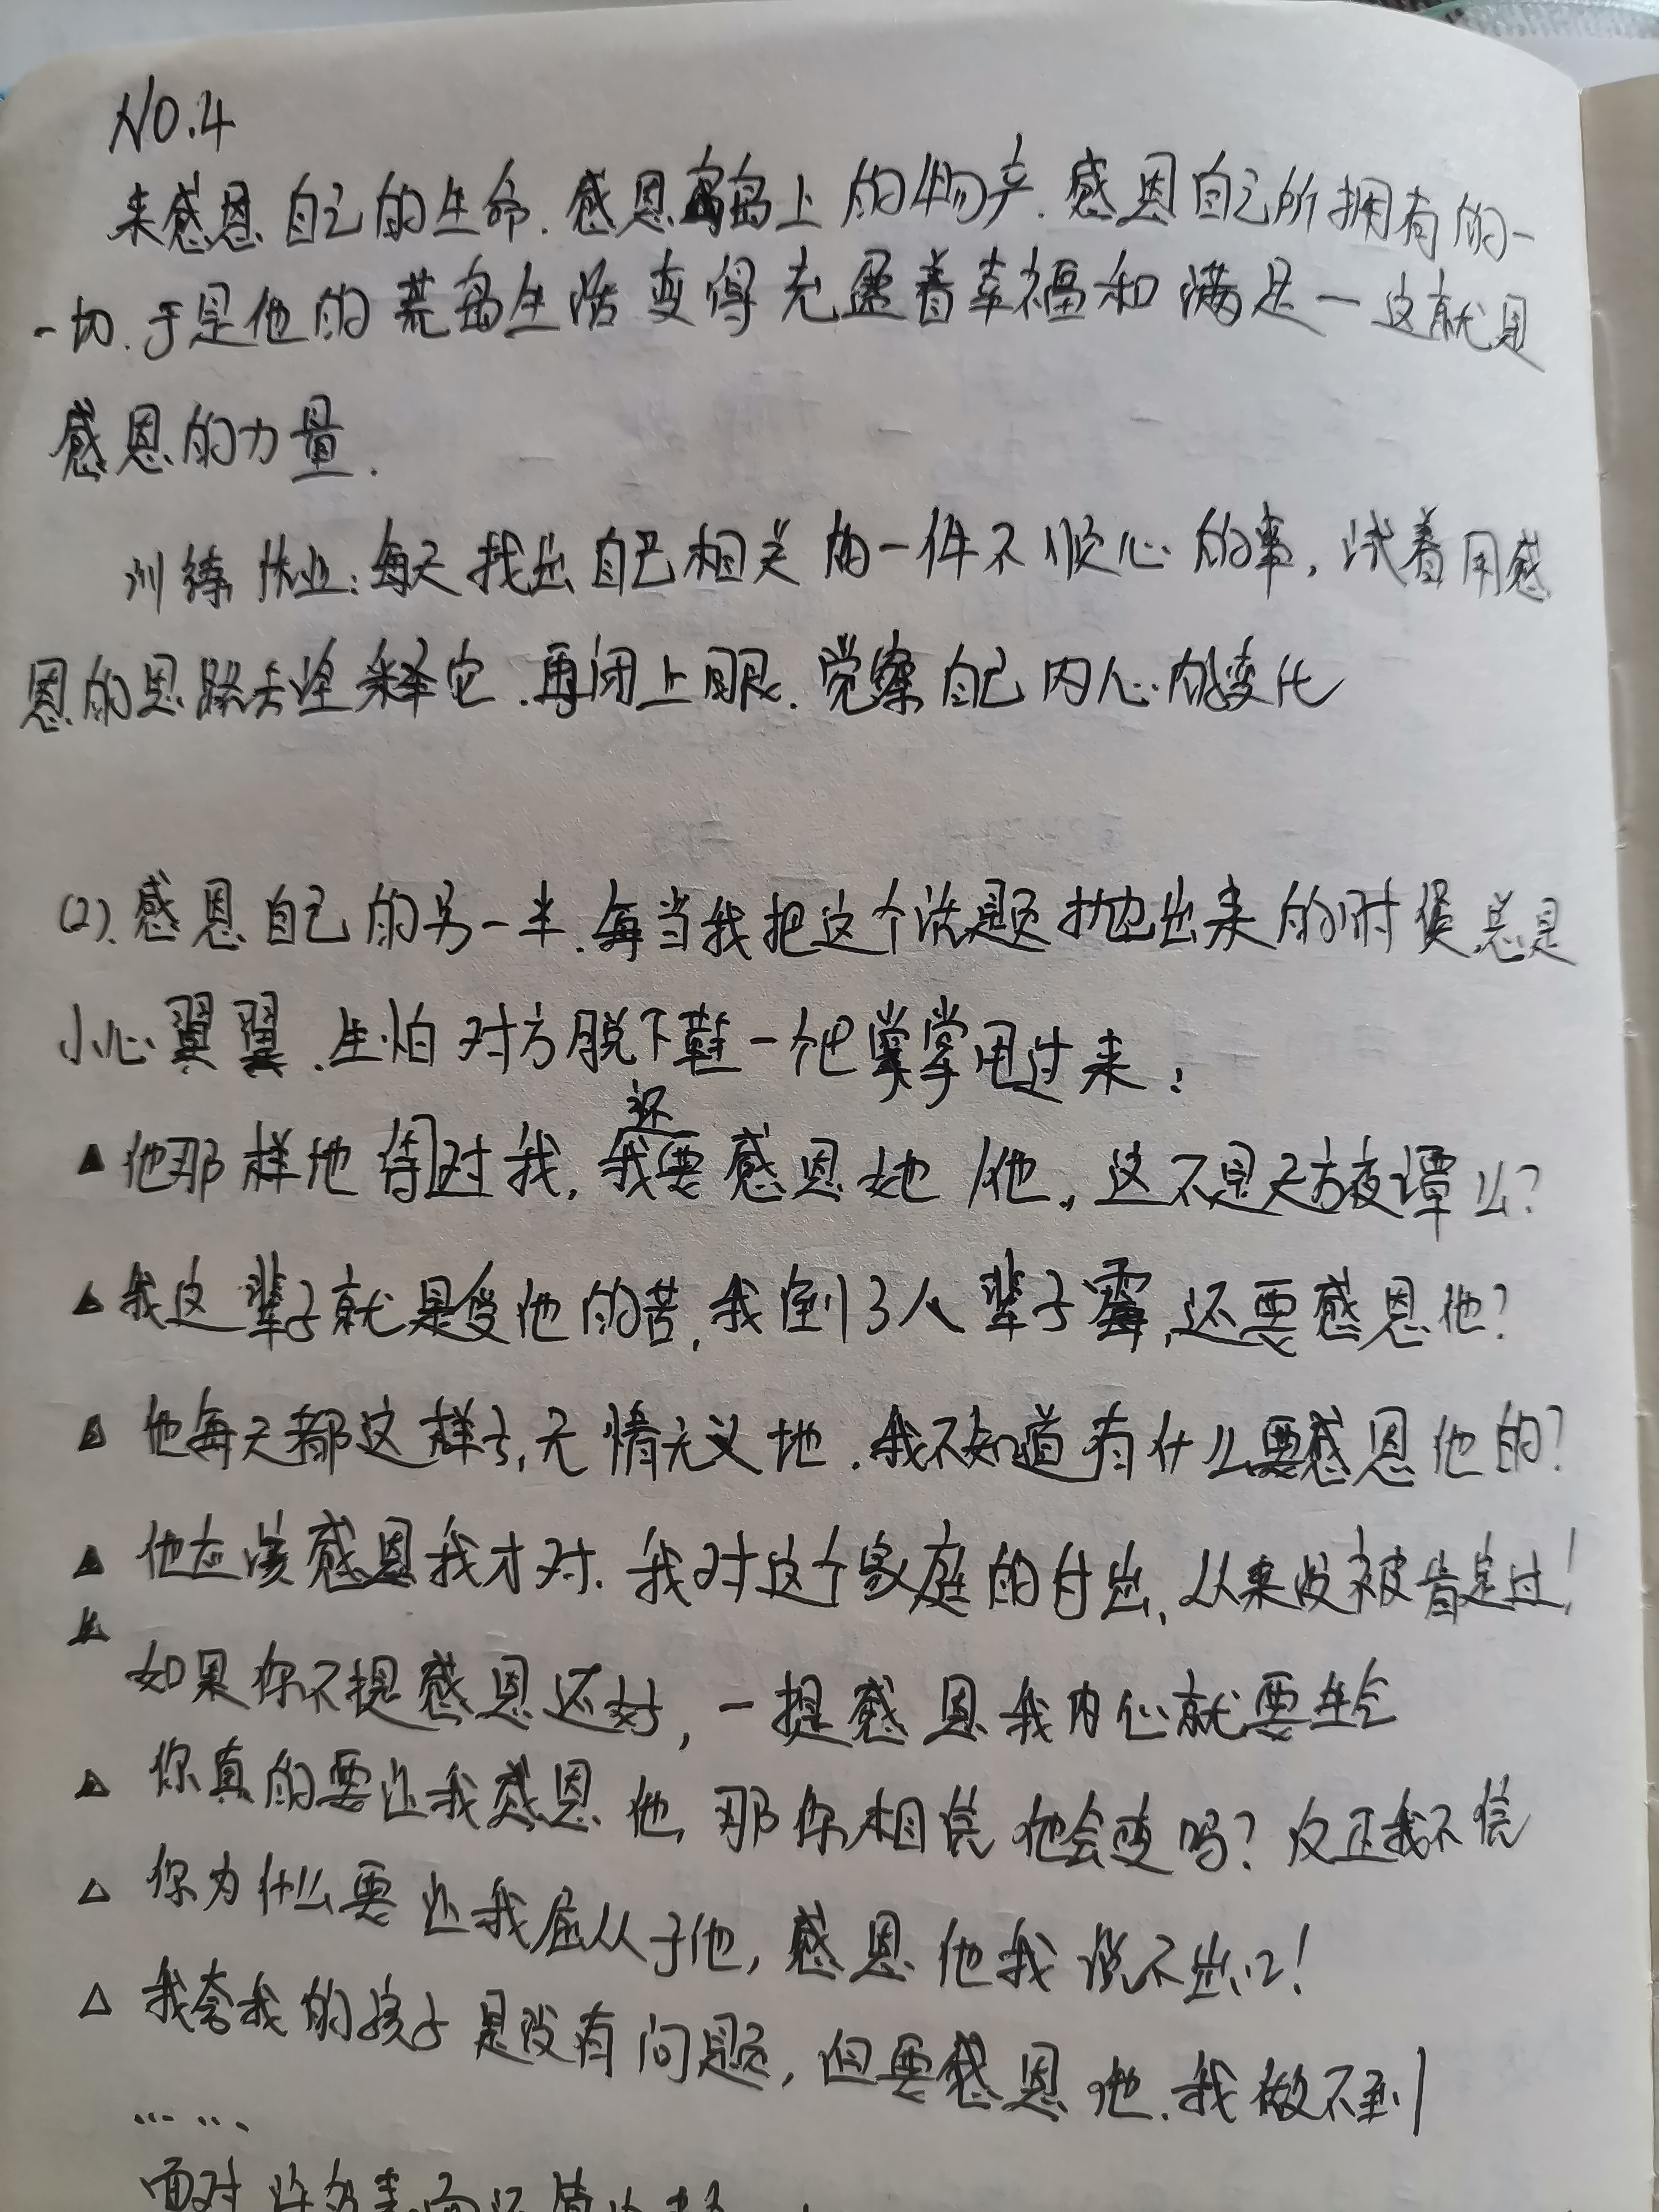 NO.4
来感恩自己的生命.感恩岛上的物产.感恩自己所拥有的一
一切.于是他的荒岛生活变得充盈着幸福和满足一这就是
感恩的力量.
训练作业:每天找出自己相关的一件不顺心的事,试着用感
恩的思路去诠释它.再闭上眼.觉察自己内心的变化
(2).感恩自己的另一半.每当我把这个话题抛出来的时候,总是
小心翼翼.生怕对方脱下鞋一个巴掌甩过来:
▲他那样地待对我,我还要感恩她/他,这不是天方夜谭么?
▲我这辈子就是受他的苦,我倒了八辈子霉,还要感恩他?
▲他每天都这样子,无情无义地.我不知道有什么要感恩他的?
▲他应该感恩我才对.我对这个家庭的付出,从来没被肯定过!
▲如果你不提感恩还好,一提感恩我内心就要生气
▲你真的要让我感恩他,那你相信他会变吗?反正我不信
△你为什么要让我屈从于他,感恩他我说不出口!
△我夸我的孩子是没有问题,但要感恩他.我做不到
……
面对